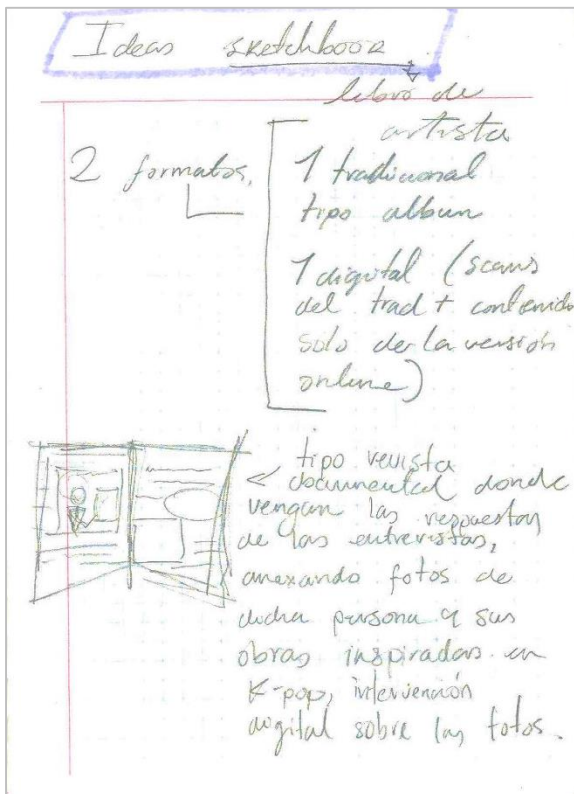 Ideas sketchbook
libro de
artista
2 formatos,
1 tradicional
tipo album
1 digital (scans
del trad + contenido
solo de la versión
online)
tipo revista
documental donde
vengan las respuestas
de las entrevistas,
anexando fotos de
dicha persona y sus
obras inspiradas en
K-pop, intervención
digital sobre las fotos.